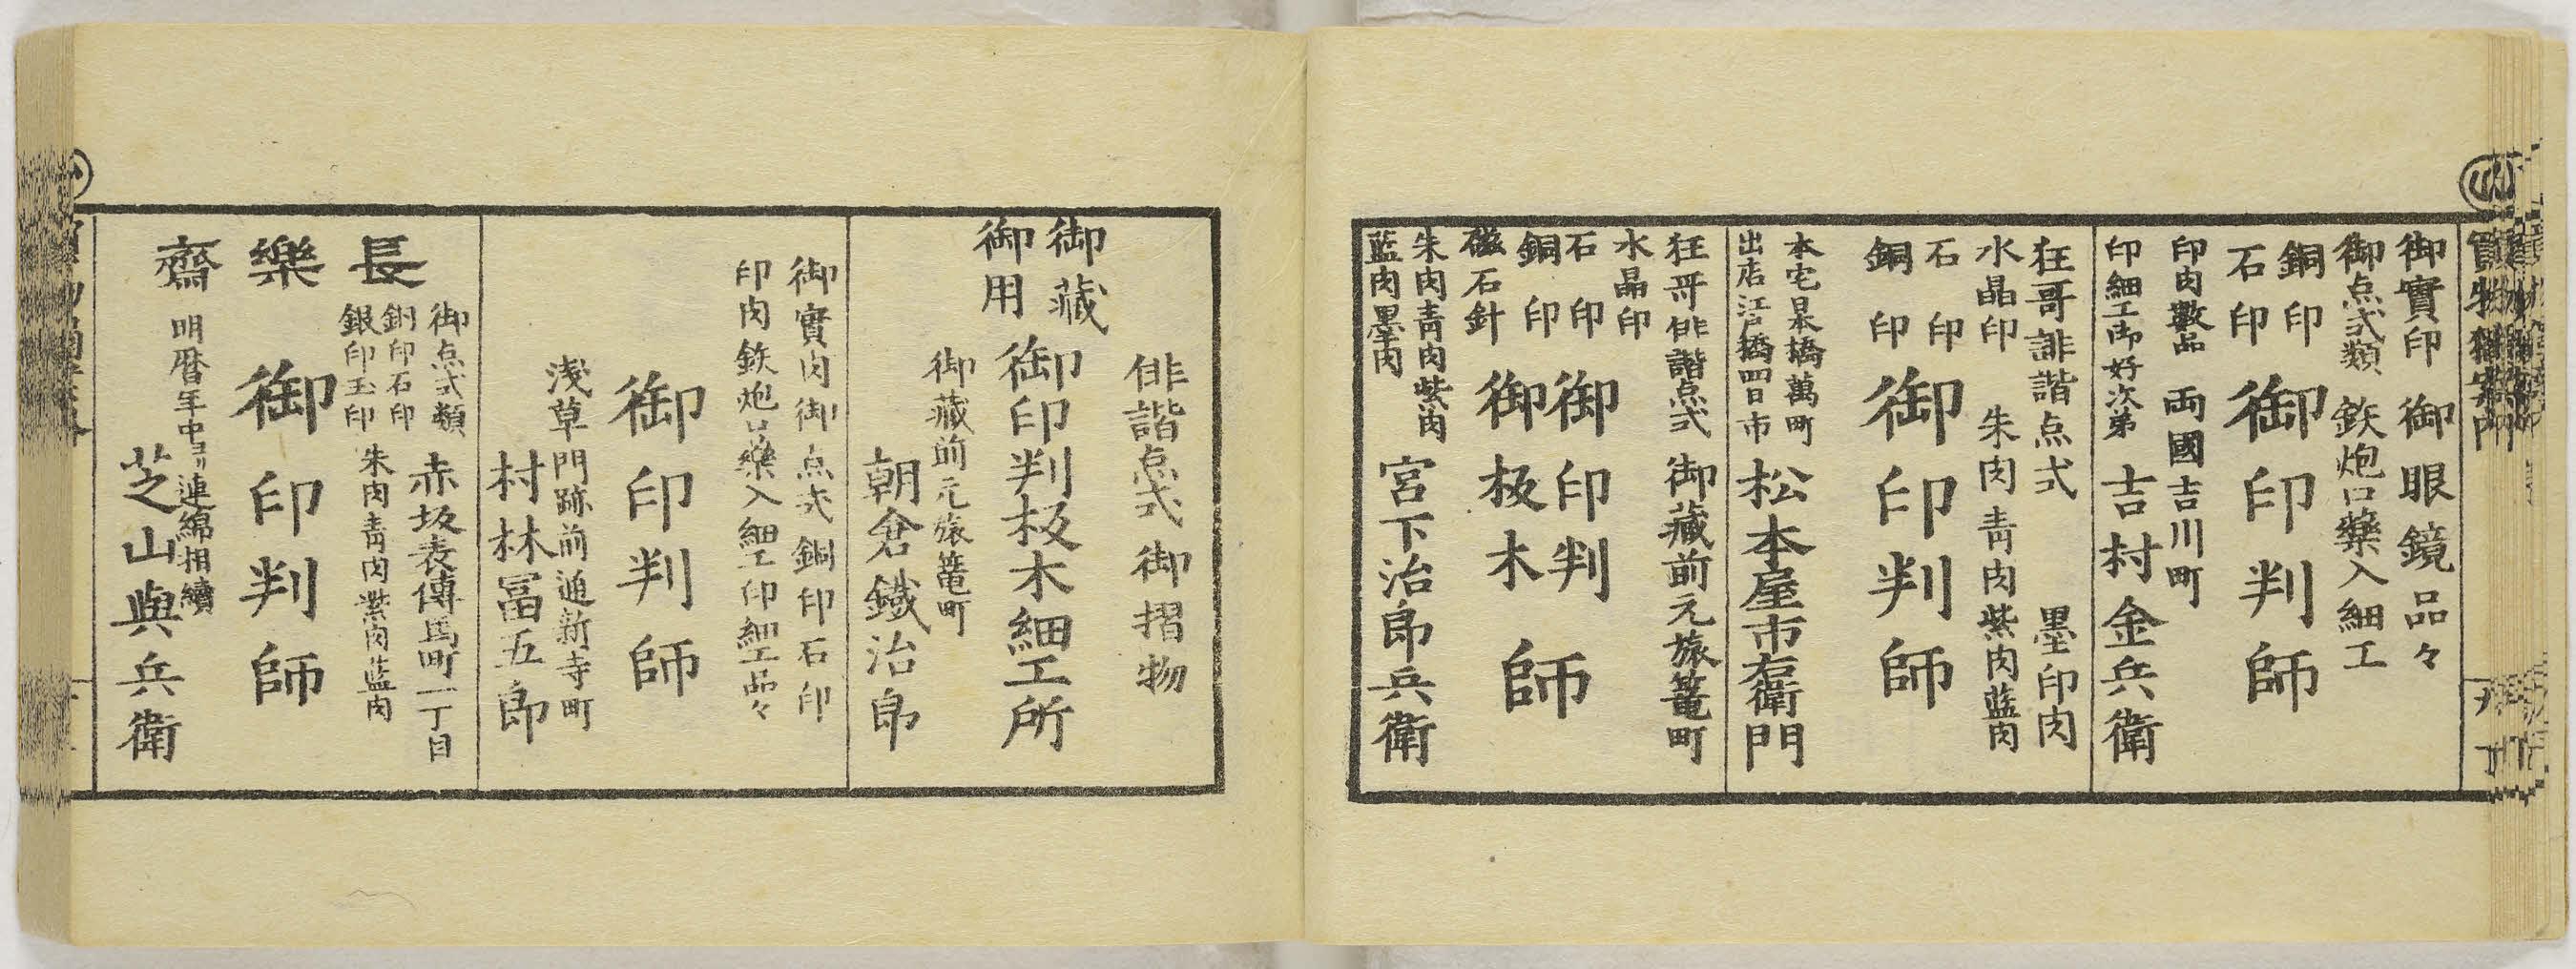 御實印 御眼鏡品々
御点式類 鉄炮口藥入細工
銅印
石印
御印判師
印肉數品 両國吉川町
印細工御好次第 吉村金兵衛
狂哥誹諧点式 墨印肉
水晶印 朱肉青肉紫肉藍肉
石印
銅印
御印判師
本宅日本橋萬町
出店江戸橋四日市
松本屋市右衛門
狂哥俳諧点式 御藏前元旅篭町
水晶印
石印
銅印
磁石針
御印判
御板木
師
朱肉青肉紫肉
藍肉墨肉
宮下治郎兵衛
俳諧点式 御摺物
御藏
御用
御印判板木細工所
御藏前元旅篭町
朝倉鐵治郎
御實肉御点式銅印石印
印肉鉄炮口藥入細工印細工品々
御印判師
淺草門跡前通新寺町
村林冨五郎
長樂齋
御点式類
銅印石印
銀印玉印
赤坂表傳馬町一丁目
朱肉青肉紫肉藍肉
御印判師
明暦年中ヨリ連綿相續
芝山與兵衛